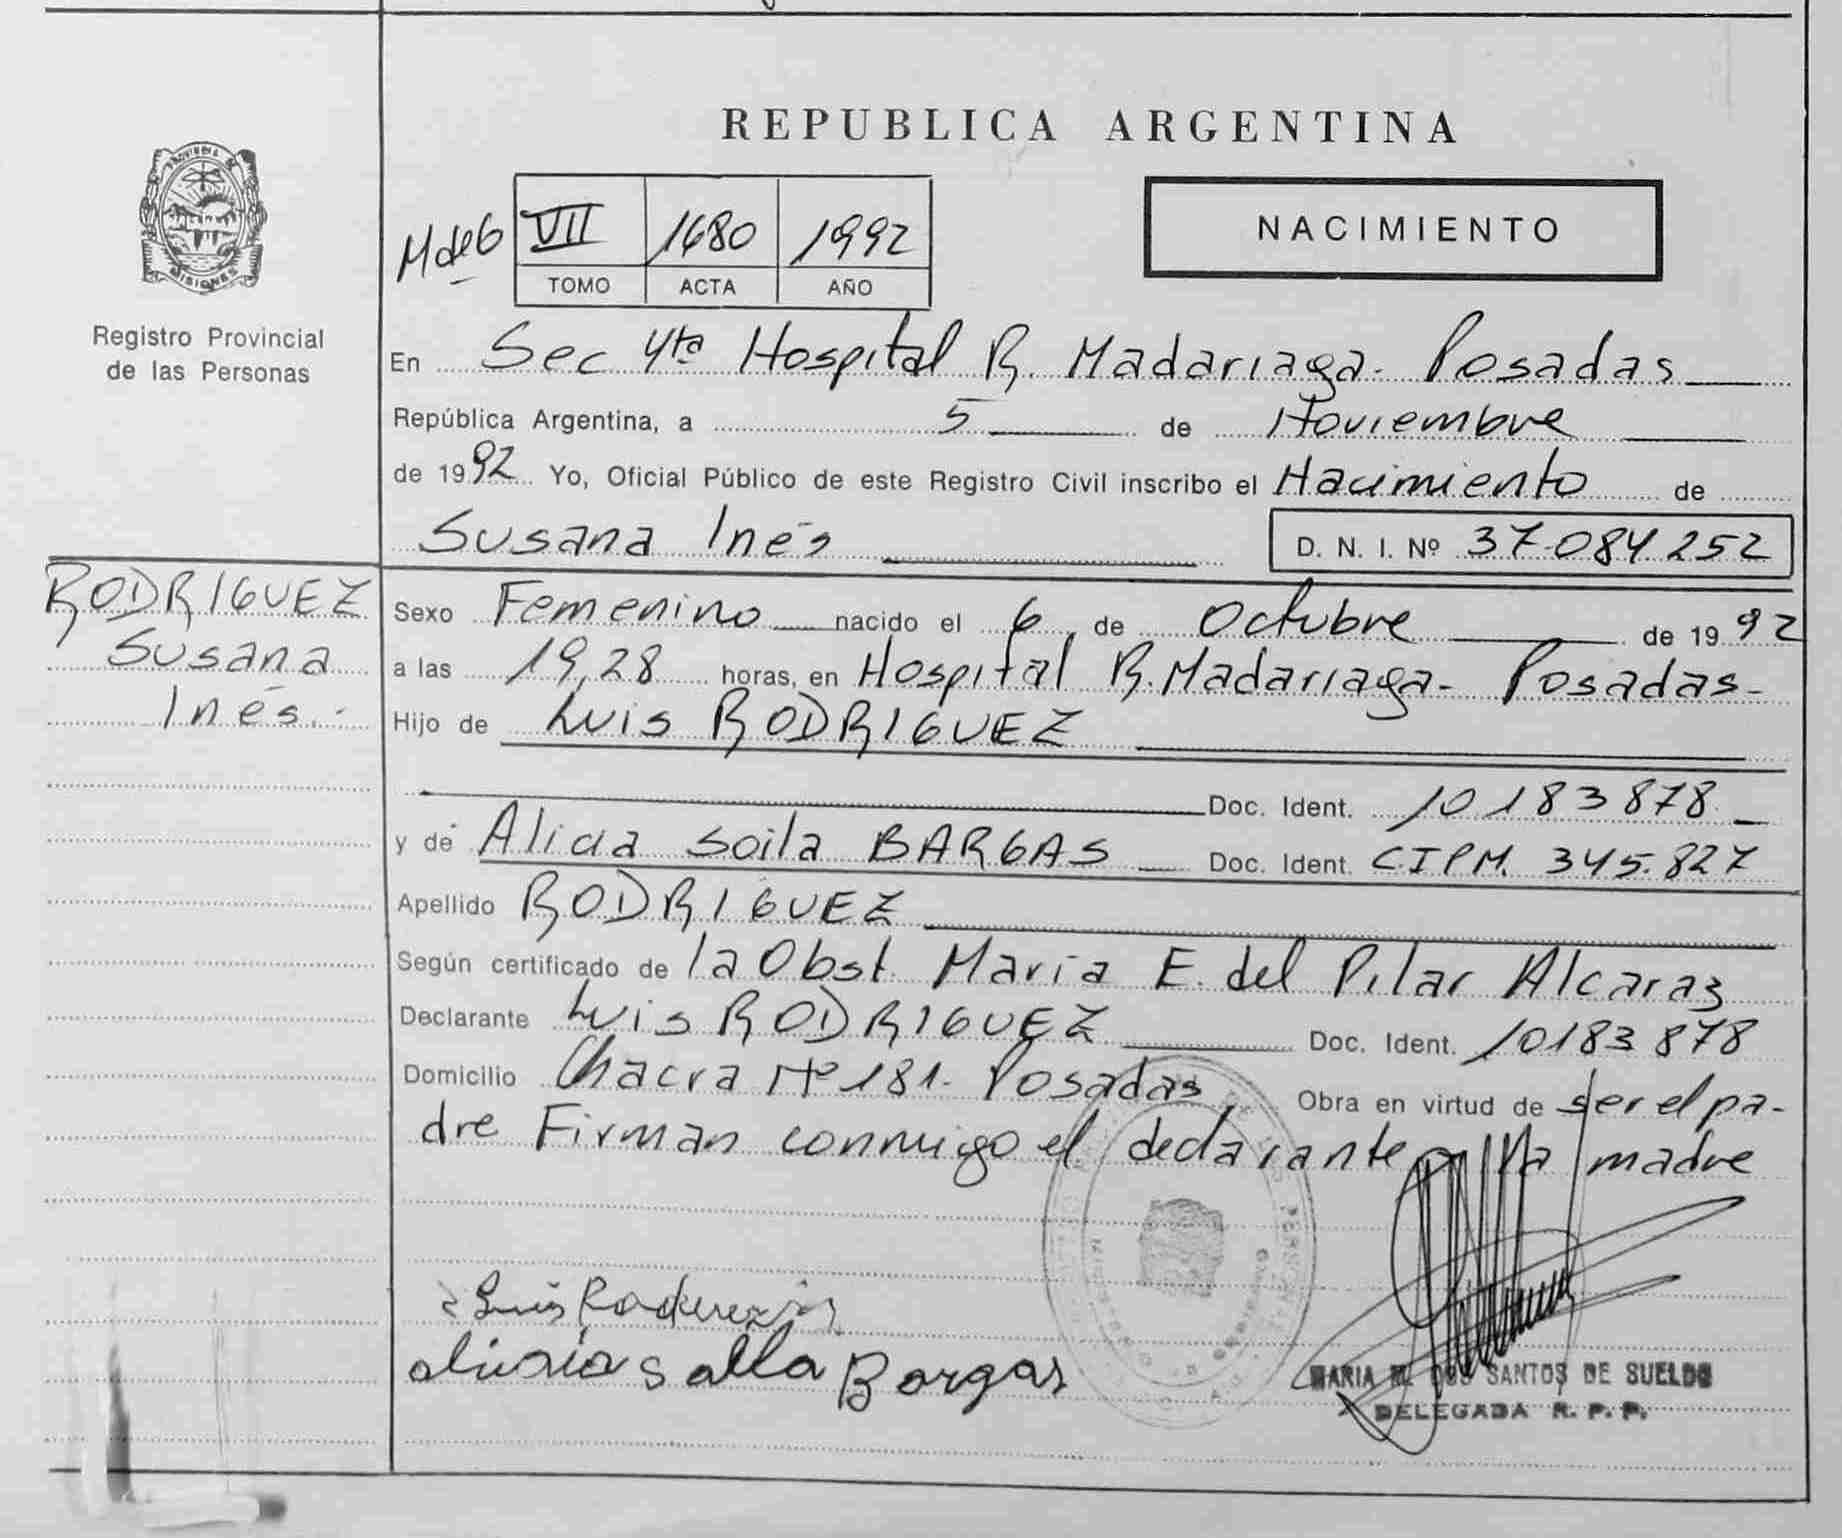 REPUBLICA ARGENTINA
PROVINCIA DE
MISIONES
Registro Provincial
de las Personas
VII 1680 1992
TOMO ACTA AÑO
NACIMIENTO
En Sec 4ta Hospital R. Madariaga - Posadas
República Argentina, a 5 de Noviembre
de 1992 Yo, Oficial Público de este Registro Civil inscribo el Nacimiento de
Susana Inés D. N. I. Nº 37.084 252
RODRIGUEZ
Susana
Inés.-
Sexo Femenino nacido el 6 de Octubre de 1992
a las 19,28 horas, en Hospital R. Madariaga - Posadas -
Hijo de Luis RODRIGUEZ
Doc. Ident. 10183878
y de Alicia Soila BARGAS Doc. Ident. C.I.P.M. 345.827
Apellido RODRIGUEZ
Según certificado de la Obst. Maria E. del Pilar Alcaraz
Declarante Luis RODRIGUEZ Doc. Ident. 10183 878
Domicilio Chacra Nº 181 - Posadas Obra en virtud de ser el pa-
dre Firman conmigo el declarante y la madre
Luis
Bargas
MARIA DOS SANTOS DE SUELDO
DELEGADA R. P. P.